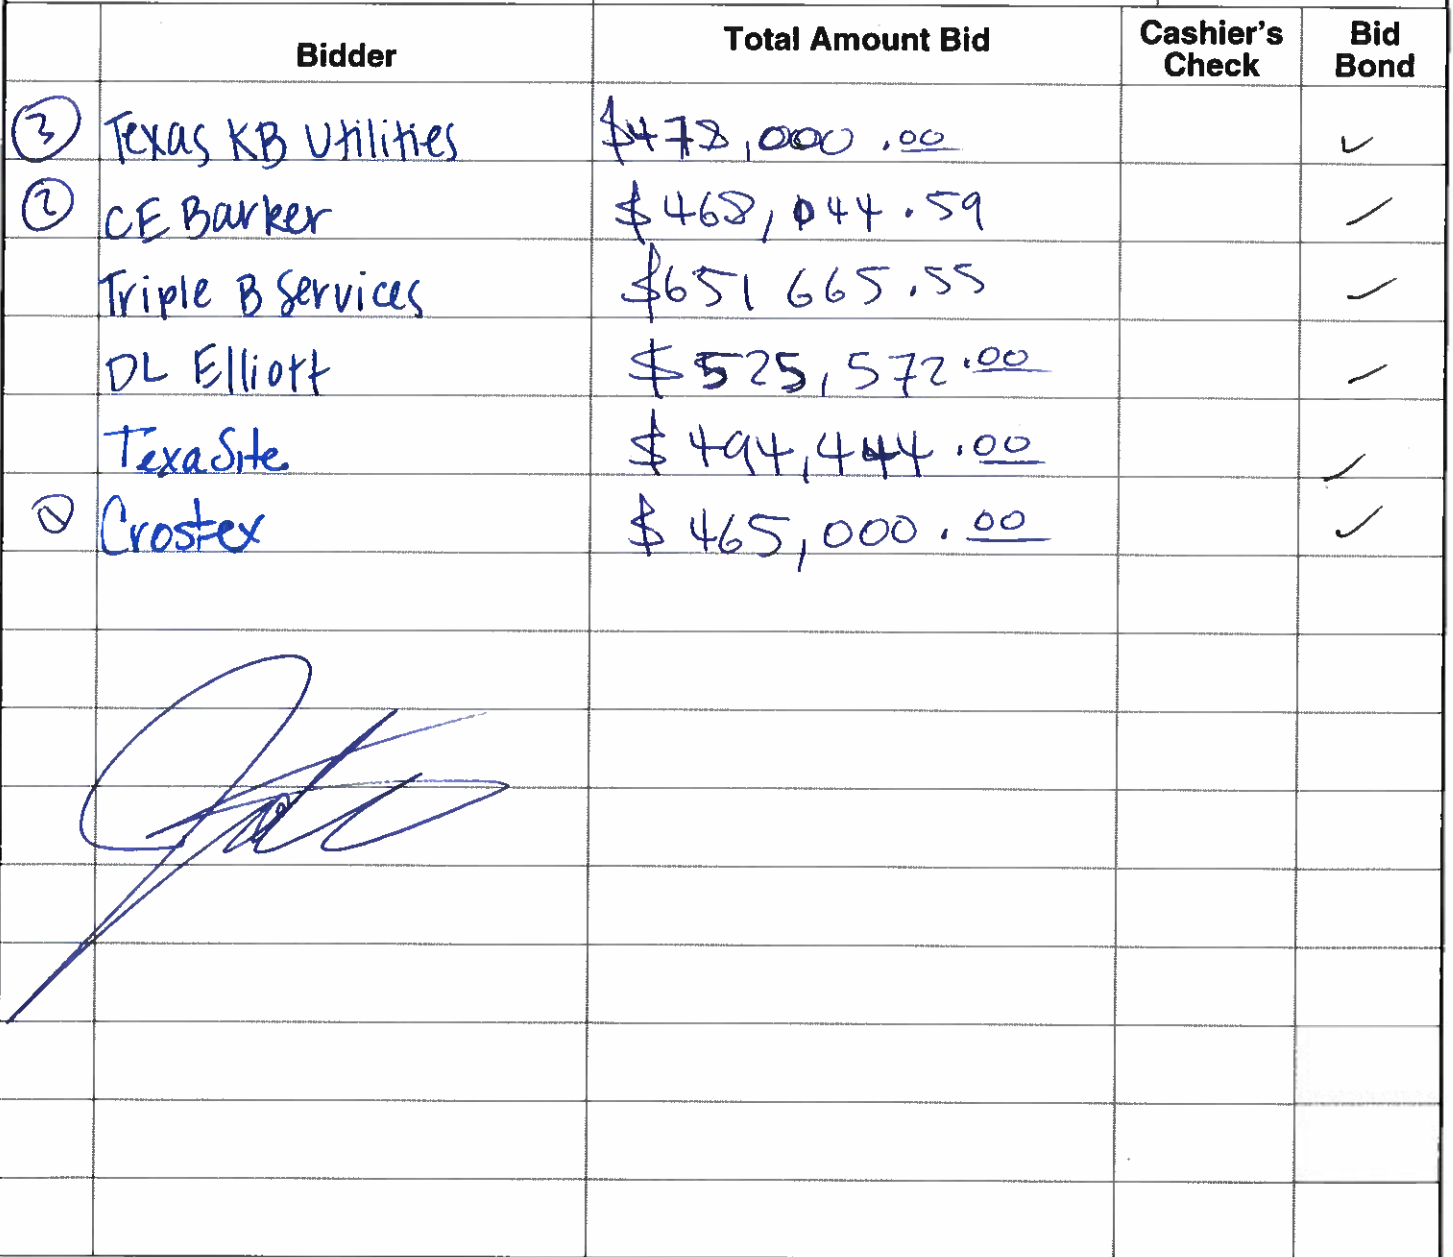 Bidder Total Amount Bid Cashier's Check Bid Bond
3 Texas KB Utilities $478,000.00 ✓
2 CE Barker $468,044.59 ✓
Triple B Services $651 665.55 ✓
DL Elliott $525,572.00 ✓
TexaSite $494,444.00 ✓
1 Crostex $465,000.00 ✓